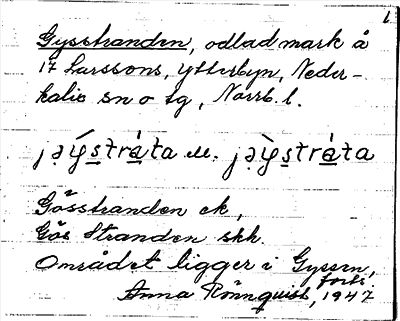 1.
Gysstranden, odlad mark å
17 Larssons, Ytterbyn, Neder-
kalix sn o tg, Norrb. l.
Gösstranden ek,
Gös Stranden skh.
Området ligger i Gyssen,
Anna Rönnquist, 1947